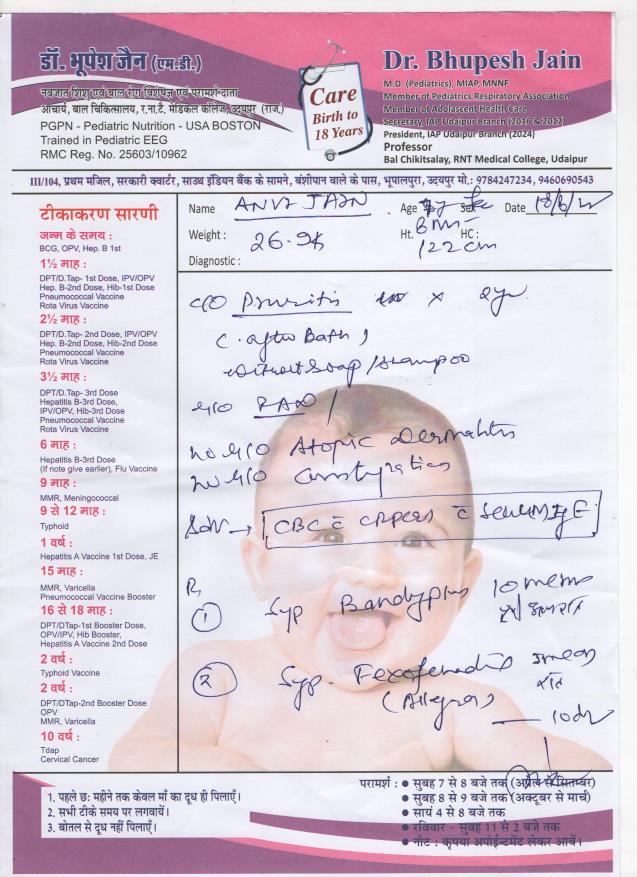 डॉ. भूपेश जैन (एम.डी.)
नवजात शिशु एवं बाल रोग विशेषज्ञ एवं परामर्श दाता
आचार्य, बाल चिकित्सालय, र.ना.टै. मेडिकल कॉलेज, उदयपुर (राज.)
PGPN - Pediatric Nutrition - USA BOSTON
Trained in Pediatric EEG
RMC Reg. No. 25603/10962
Care
Birth to
18 Years
Dr. Bhupesh Jain
M.D. (Pediatrics), MIAP, MNNF
Member of Pediatrics Respiratory Association
Member of Adolascent Health Care
Secretary, IAP Udaipur Branch (2016 & 2017)
President, IAP Udaipur Branch (2024)
Professor
Bal Chikitsalay, RNT Medical College, Udaipur
III/104, प्रथम मंजिल, सरकारी क्वार्टर, साउथ इंडियन बैंक के सामने, बंशीपान वाले के पास, भूपालपुरा, उदयपुर मो.: 9784247234, 9460690543
टीकाकरण सारणी
जन्म के समय :
BCG, OPV, Hep. B 1st
1½ माह :
DPT/D.Tap- 1st Dose, IPV/OPV
Hep. B-2nd Dose, Hib-1st Dose
Pneumococcal Vaccine
Rota Virus Vaccine
2½ माह :
DPT/D.Tap- 2nd Dose, IPV/OPV
Hep. B-2nd Dose, Hib-2nd Dose
Pneumococcal Vaccine
Rota Virus Vaccine
3½ माह :
DPT/D.Tap- 3rd Dose
Hepatitis B-3rd Dose,
IPV/OPV, Hib-3rd Dose
Pneumococcal Vaccine
Rota Virus Vaccine
6 माह :
Hepatitis B-3rd Dose
(If note give earlier), Flu Vaccine
9 माह :
MMR, Meningococcal
9 से 12 माह :
Typhoid
1 वर्ष :
Hepatitis A Vaccine 1st Dose, JE
15 माह :
MMR, Varicella
Pneumococcal Vaccine Booster
16 से 18 माह :
DPT/DTap-1st Booster Dose,
OPV/IPV, Hib Booster,
Hepatitis A Vaccine 2nd Dose
2 वर्ष :
Typhoid Vaccine
2 वर्ष :
DPT/DTap-2nd Booster Dose
OPV
MMR, Varicella
10 वर्ष :
Tdap
Cervical Cancer
Name ANVI JAIN Age Sex Date
Weight : 26.9k Ht. HC :
122 cm
Diagnostic :
c/o Pruritis x 2yr
C. after Bath
without Soap / shampoo
H/o
no H/o Atopic Dermatitis
no H/o Constipation
Adv → CBC c̄ c̄ Serum IgE
R
1 Syp Bandyplus
2 Syp. Fexofenadine
(Allegra)
परामर्श : • सुबह 7 से 8 बजे तक (अप्रैल से सितम्बर)
• सुबह 8 से 9 बजे तक (अक्टूबर से मार्च)
• सायं 4 से 8 बजे तक
• रविवार - सुबह 11 से 2 बजे तक
• नोट : कृपया अपोईन्टमेंट लेकर आवें।
1. पहले छ: महीने तक केवल माँ का दूध ही पिलाएँ।
2. सभी टीके समय पर लगवायें।
3. बोतल से दूध नहीं पिलाएँ।